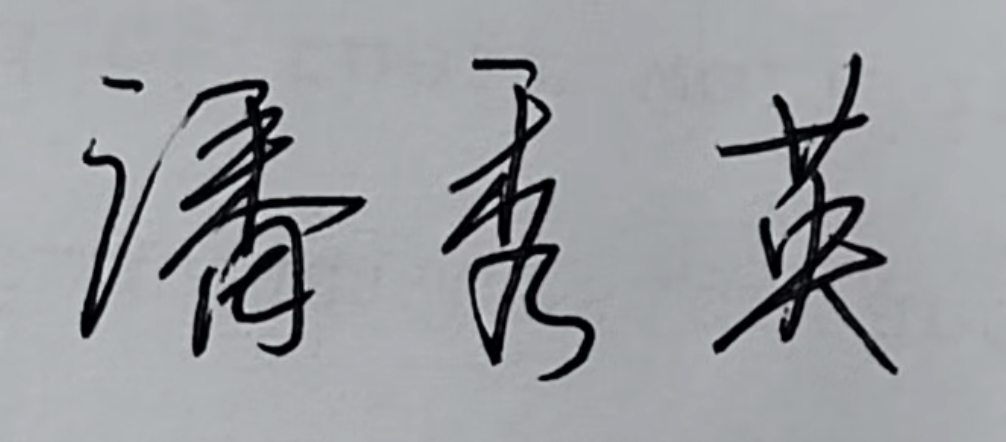 潘秀英